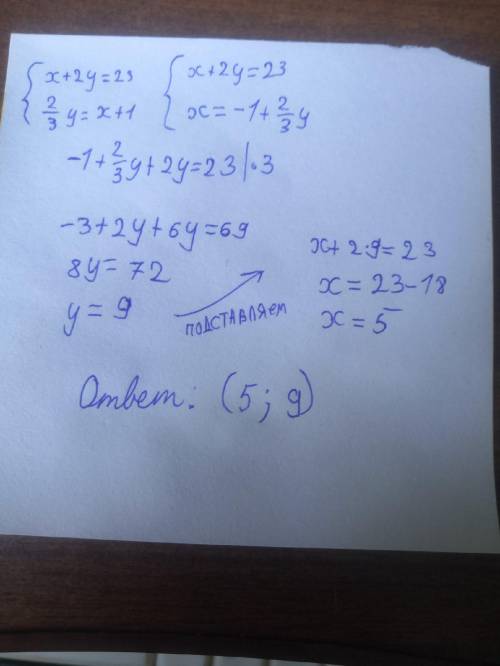 { x+2y=23
2/3 y = x+1
{ x+2y=23
x = -1+2/3 y
-1+2/3 y+2y=23 |·3
-3+2y+6y=69
8y=72
y=9
подставляем
x+2·9=23
x=23-18
x=5
Ответ: (5; 9)